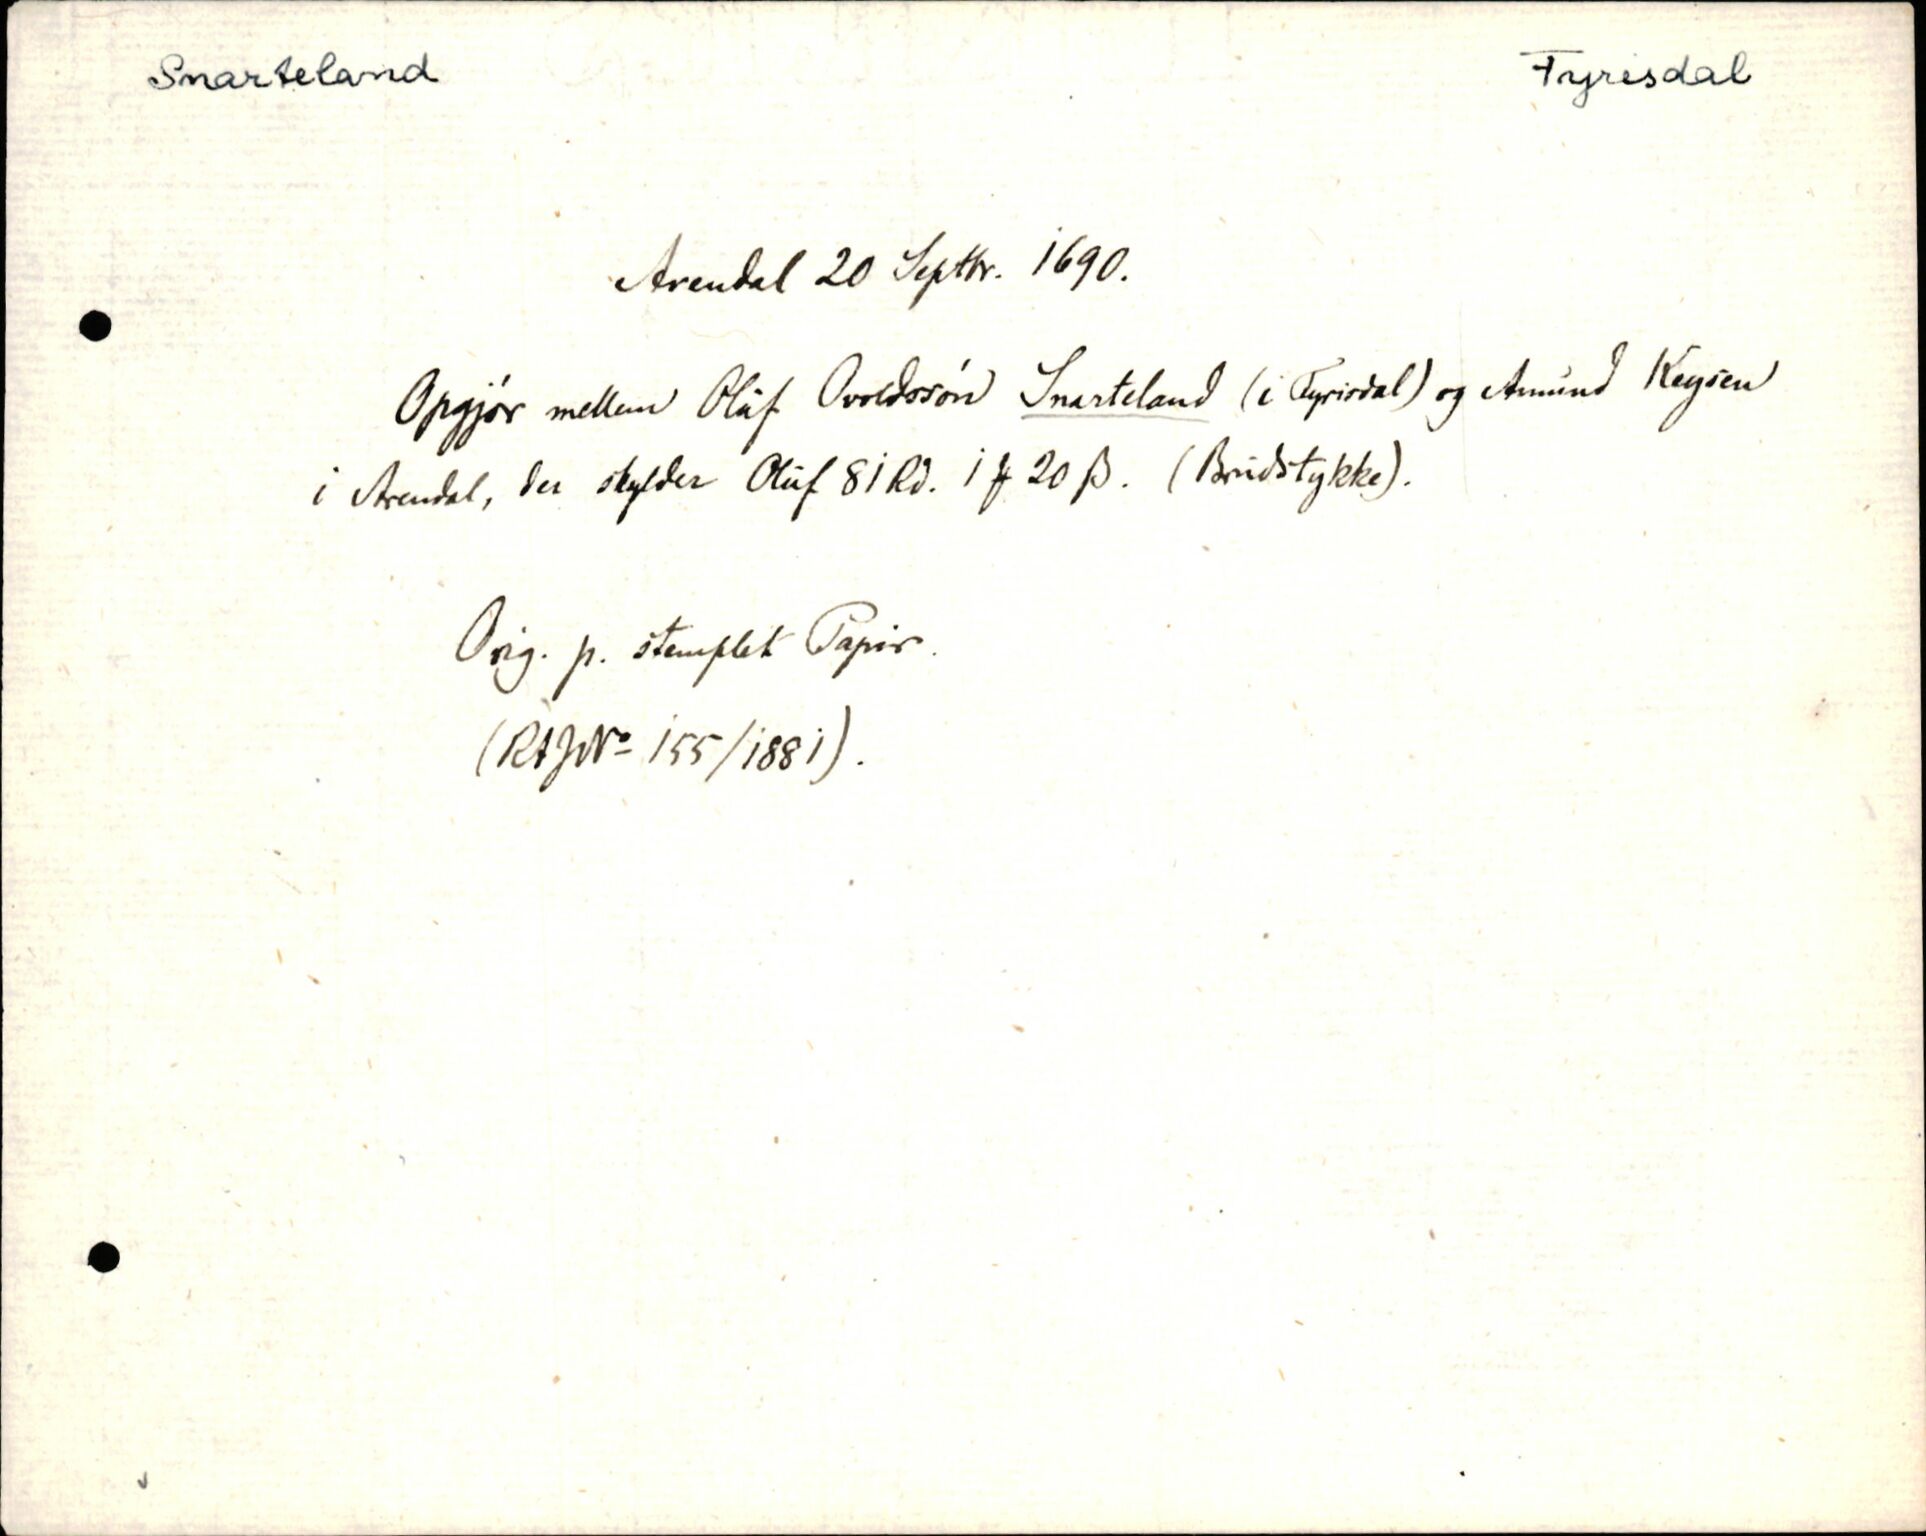 Snarteland Fyrisdal
Arendal 20 Septbr. 1690.
Opgjör mellem Oluf Ovoldssön Snarteland (i Fyrisdal) og Amund Keysen
i Arendal, der skylder Oluf 81 Rd. 1 20 ß. (Brudstykke).
Orig. p. stemplet Papir.
(RAJNo 155/1881).